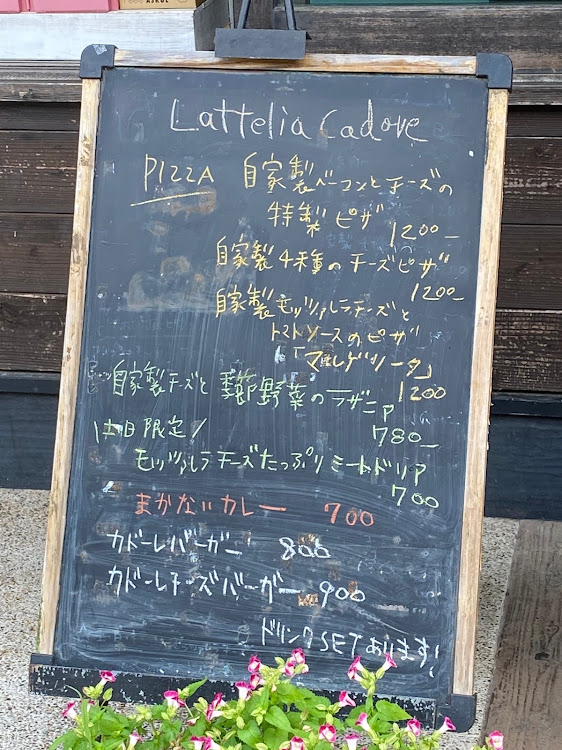 Lattelia Cadore
PIZZA 自家製ベーコンとチーズの
特製ピザ
1200-
自家製4種のチーズピザ
1200-
自家製モッツァレラチーズと
トマトソースのピザ
「マルゲリータ」
1200
自家製チーズと季節野菜のラザニア
780-
\土日限定/
モッツァレラチーズたっぷりミートドリア
700
まかないカレー 700
カドーレバーガー 800
カドーレチーズバーガー 900
ドリンクSETあります!